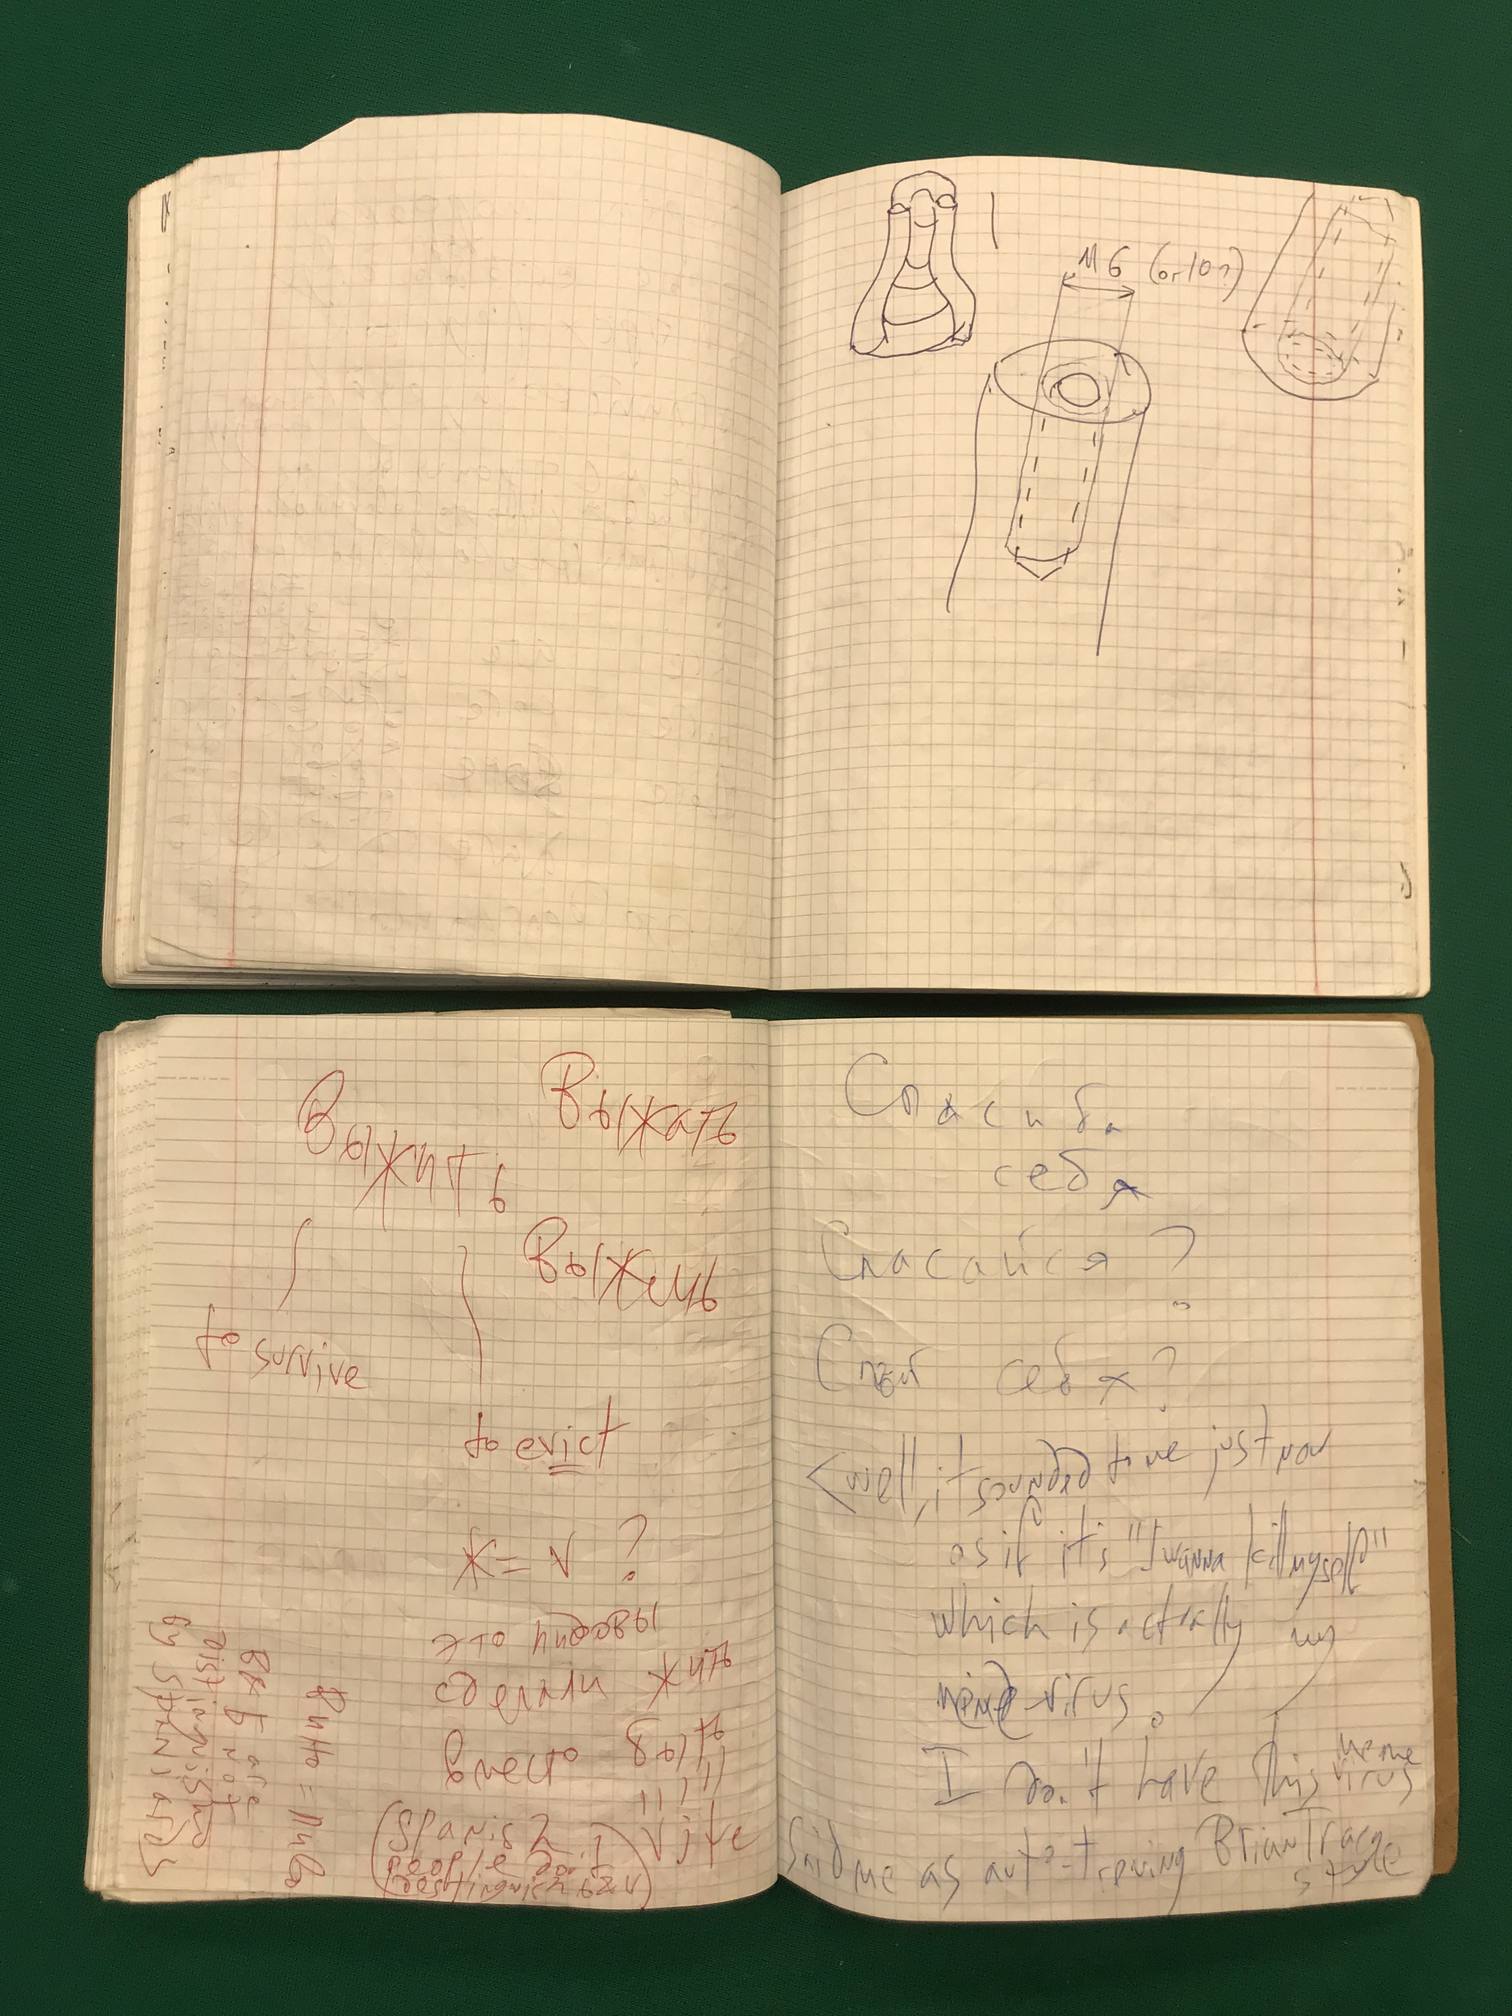 M6 (or 10?)
Выжить
Выжать
Выжемь
to survive
to evict
Ж = N ?
это
сделали жить
вместо Быть
vite
(Spanish
people don't
B & V)
Вино = Пиво
B & V are
not
distinguished
by Spaniards
Спасиба
себя
Спасайся ?
себя ?
<well, it sounded to me just now
as if it's "I wanna kill myself"
which is actually my
virus.
I don't have this meme
virus
Said me as auto-training Brian Tracy
style